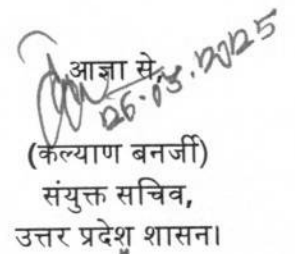 आज्ञा से,
26.05.2025
(कल्याण बनर्जी)
संयुक्त सचिव,
उत्तर प्रदेश शासन।